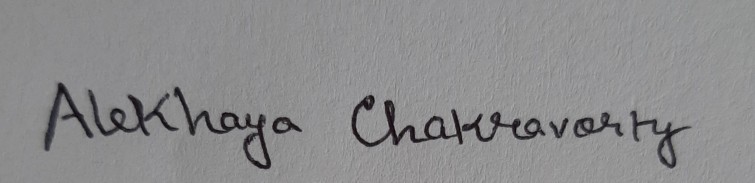 Alekhaya Chakravorty